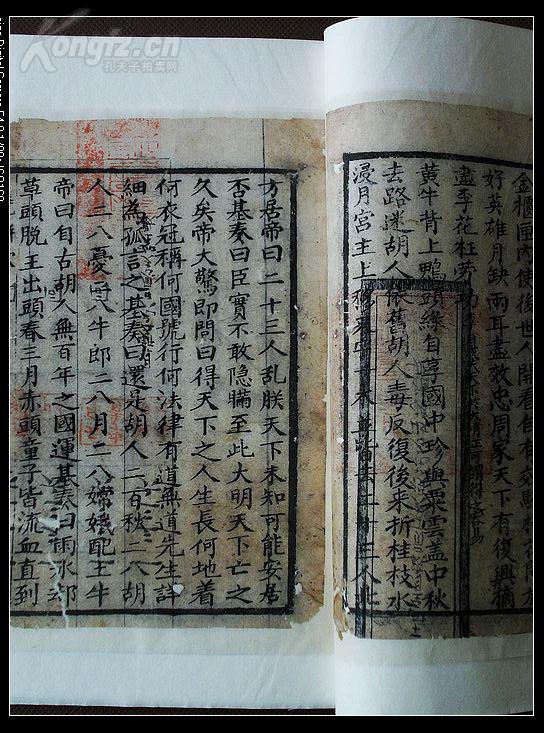 Kongfz.cn
孔夫子拍卖网
金櫃匣內使後世人開看自有効驗
好英雄月缺兩耳盡效忠周家天下有復興摘
盡李花枉劳功
黄牛背上鴨頭緑自浮國中珍與粟雲盖中秋
去路迷胡人依舊胡人毒反復後来折桂枝水
浸月宮主上 二十三人
方居帝曰二十三人乱朕天下未知可能安居
否基奏曰臣實不敢隐瞞至此大明天下亡之
久矣帝大驚即問曰得天下之人生長何地着
何衣冠稱何國號行何法律有道無道先生詳
細為孤言之基奏曰還是胡人二百秋二八胡
人二八憂二八牛郎二八月二八嫦娥配王牛
帝曰自古胡人無百年之國運基奏曰雨水
草頭脱王出頭春三月赤頭童子皆流血直到